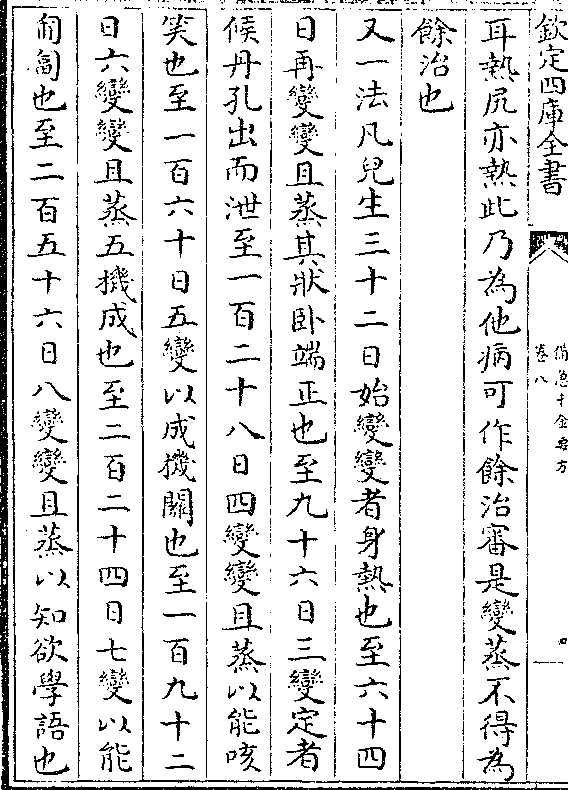 欽定四庫全書
備急千金要方
卷八
耳熱尻亦熱此乃為他病可作餘治審是變蒸不得為
餘治也
又一法凡兒生三十二日始變變者身熱也至六十四
日再變變且蒸其狀卧端正也至九十六日三變定者
候丹孔出而泄至一百二十八日四變變且蒸以能咳
笑也至一百六十日五變以成機關也至一百九十二
日六變變且蒸五機成也至二百二十四日七變以能
匍匐也至二百五十六日八變變且蒸以知欲學語也